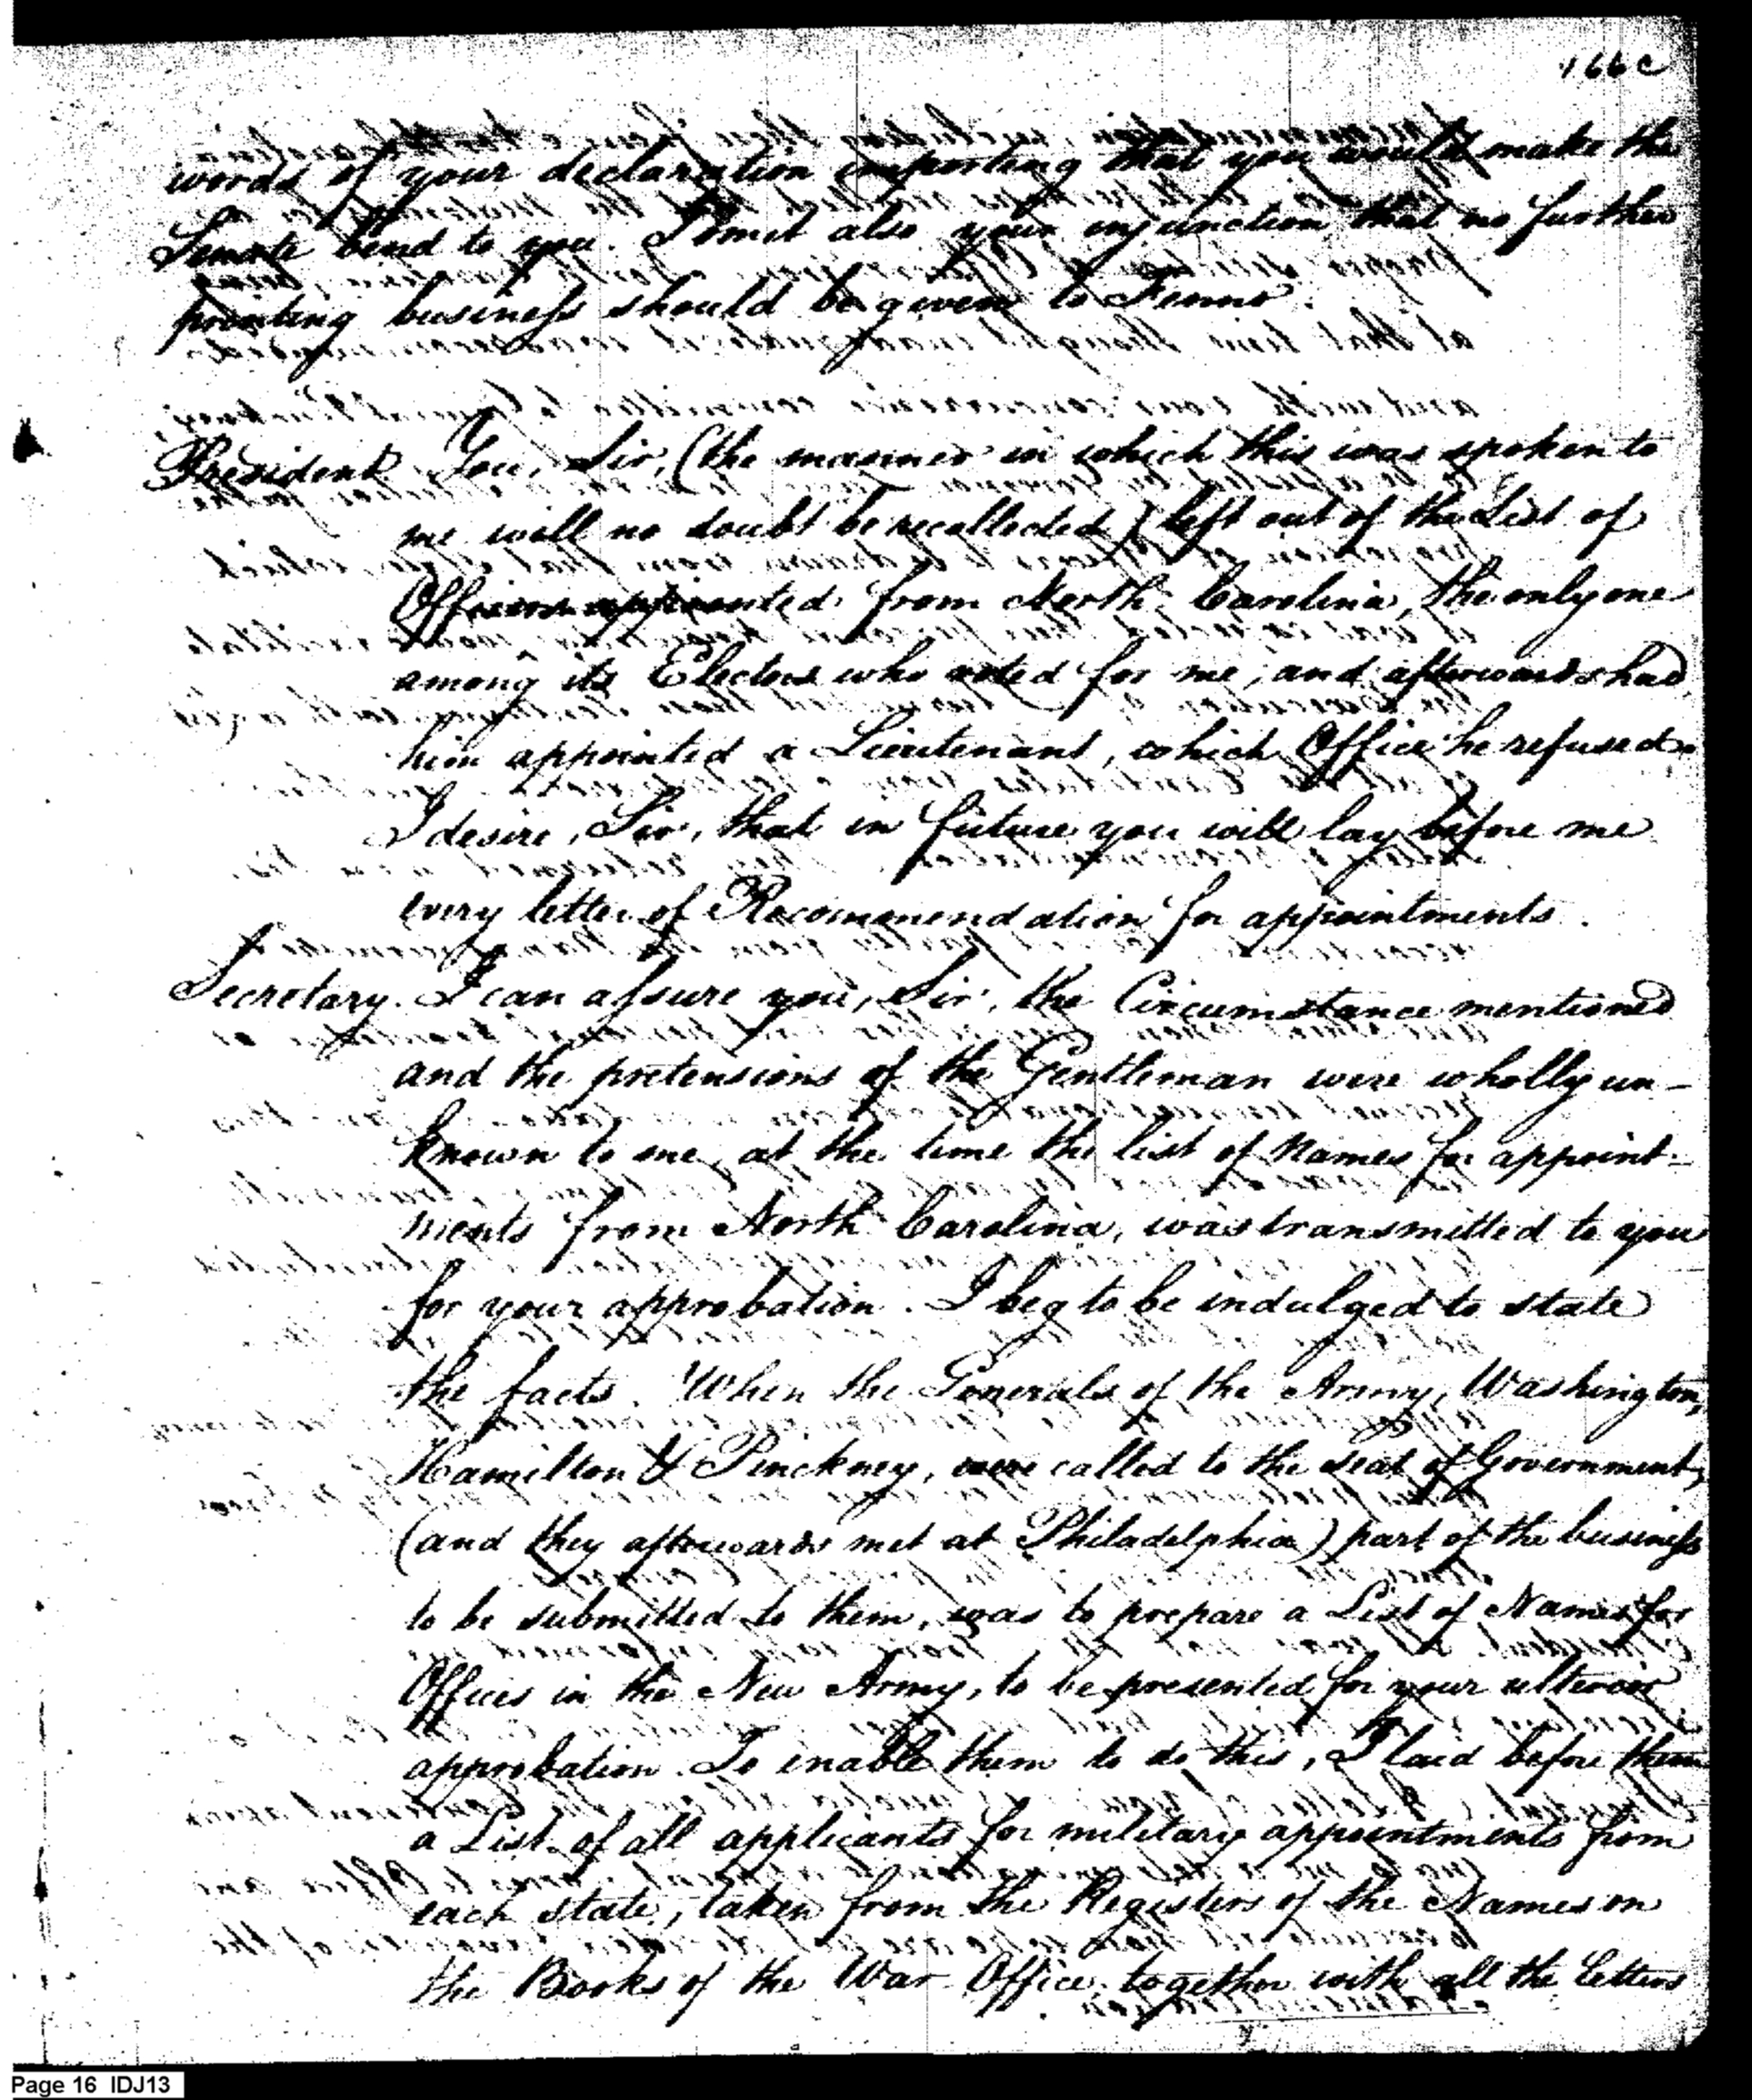 166 c
words of your declaration importing that you would make the
Senate bend to you. I omit also your injunction that no further
printing business should be given to Fenno.
President. You, Sir, (the manner in which this was spoken to
me will no doubt be recollected) left out of the List of
Officers appointed from North Carolina, the only one
among its Electors who voted for me, and afterwards had
him appointed a Lieutenant, which Office he refused.
I desire, Sir, that in future you will lay before me
every letter of Recommendation for appointments.
Secretary. I can assure you, Sir, the Circumstance mentioned
and the pretensions of the Gentleman were wholly un-
known to me, at the time the list of Names for appoint-
ments from North Carolina, was transmitted to you
for your approbation. I beg to be indulged to state
the facts. When the Generals of the Army, Washington,
Hamilton & Pinckney, were called to the seat of Government,
(and they afterwards met at Philadelphia) part of the business
to be submitted to them, was to prepare a List of Names for
Offices in the New Army, to be presented for your ulterior
approbation. To enable them to do this, I laid before them
a List of all applicants for military appointments from
each state, taken from the Registers of the Names on
the Books of the War Office, together with all the letters
Page 16 IDJ13